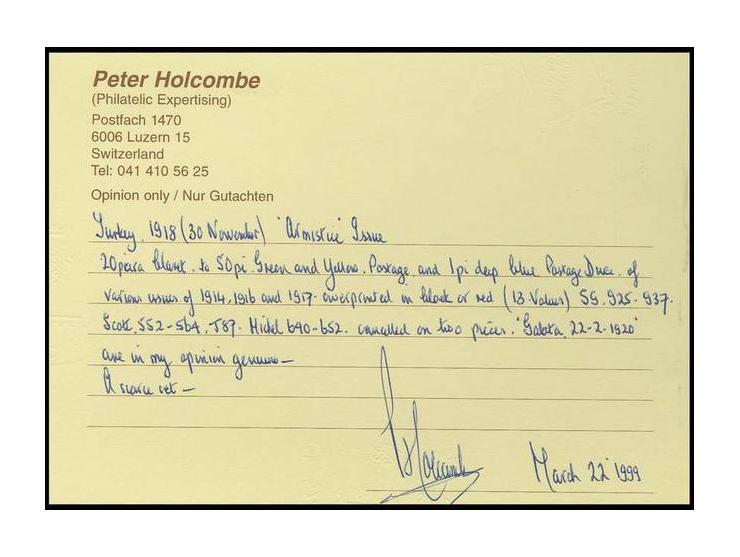 Peter Holcombe
(Philatelic Expertising)
Postfach 1470
6006 Luzern 15
Switzerland
Tel: 041 410 56 25
Opinion only / Nur Gutachten
Turkey. 1918 (30 November) 'Armistice' Issue
20para to 50pi Green and Yellow. Postage and 1pi deep blue Postage Due. of
various issues of 1914, 1916 and 1917. overprinted in black or red (13 Values) SG. 925-937.
Scott. 552-564, J87. Michel 640-652. cancelled on two pieces. 'Galata. 22-2-1920'
are in my opinion genuine —
A scarce set —
Holcombe
March 22 1999